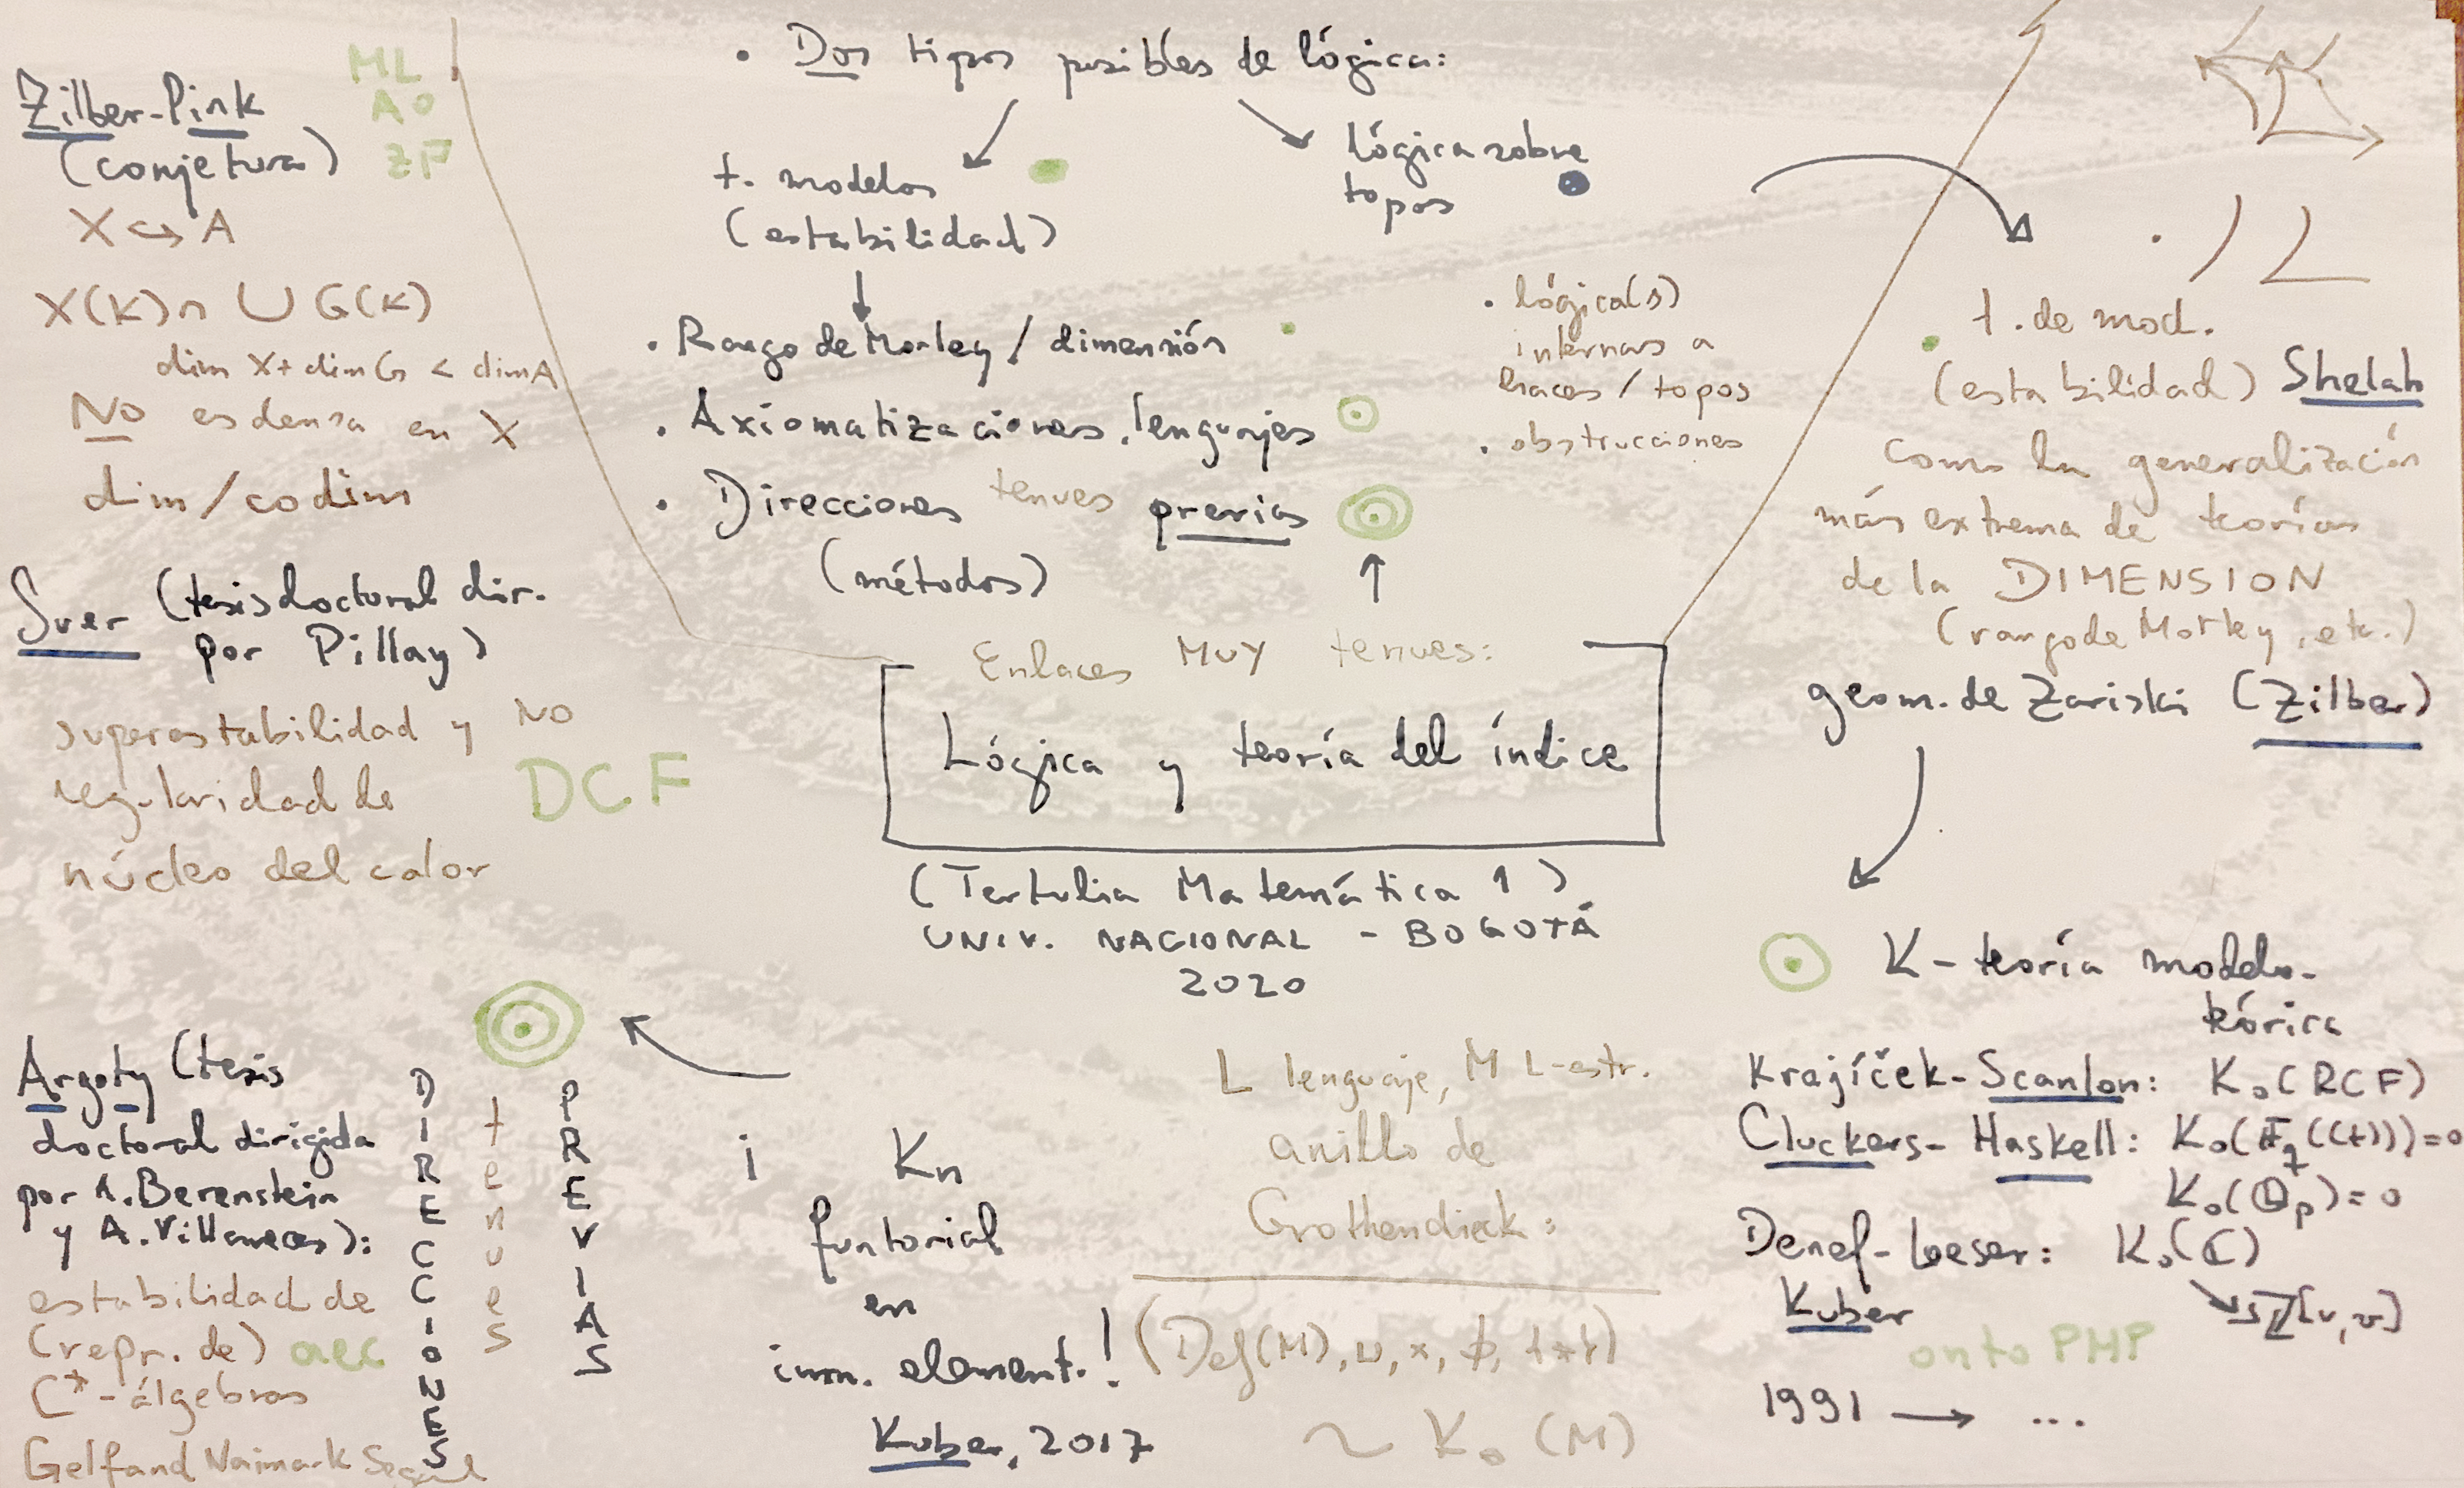 Zilber-Pink
(conjetura)
ML
AO
ZP
X ↪ A
X(K) ∩ ∪ G(K)
dim X + dim G < dim A
No es densa en X
dim/codim
Suer (tesis doctoral dir.
por Pillay)
superestabilidad y no
regularidad de
núcleo del calor
DCF
Argoty (tesis
doctoral dirigida
por A. Berenstein
y A. Villaveces):
estabilidad de
(repr. de) aec
C*-álgebras
Gelfand Naimark Segal
DIRECCIONES
tenues
PREVIAS
• Dos tipos posibles de lógica:
t. modelos
(estabilidad)
lógica sobre
topos
• Rango de Morley / dimensión
• Axiomatizaciones, lenguajes
• Direcciones tenues previas
(métodos)
• lógica(s)
internas a
haces / topos
• obstrucciones
Enlaces MUY tenues:
Lógica y teoría del índice
(Tertulia Matemática 1)
UNIV. NACIONAL - BOGOTÁ
2020
¡ Kn
funtorial
en
inm. element.!
Kuber, 2017
L lenguaje, M L-estr.
anillo de
Grothendieck:
~ K₀(M)
t. de mod.
(estabilidad) Shelah
como la generalización
más extrema de teorías
de la DIMENSION
(rango de Morley, etc.)
geom. de Zariski (Zilber)
K-teoría modelo-
teórica
Krajíček-Scanlon: K₀(RCF)
Cluckers-Haskell: K₀(𝔽q((t)))=0
K₀(ℚp)=0
Denef-Loeser: K₀(ℂ)
Kuber
ℤ[u,v]
onto PHP
1991 → ...